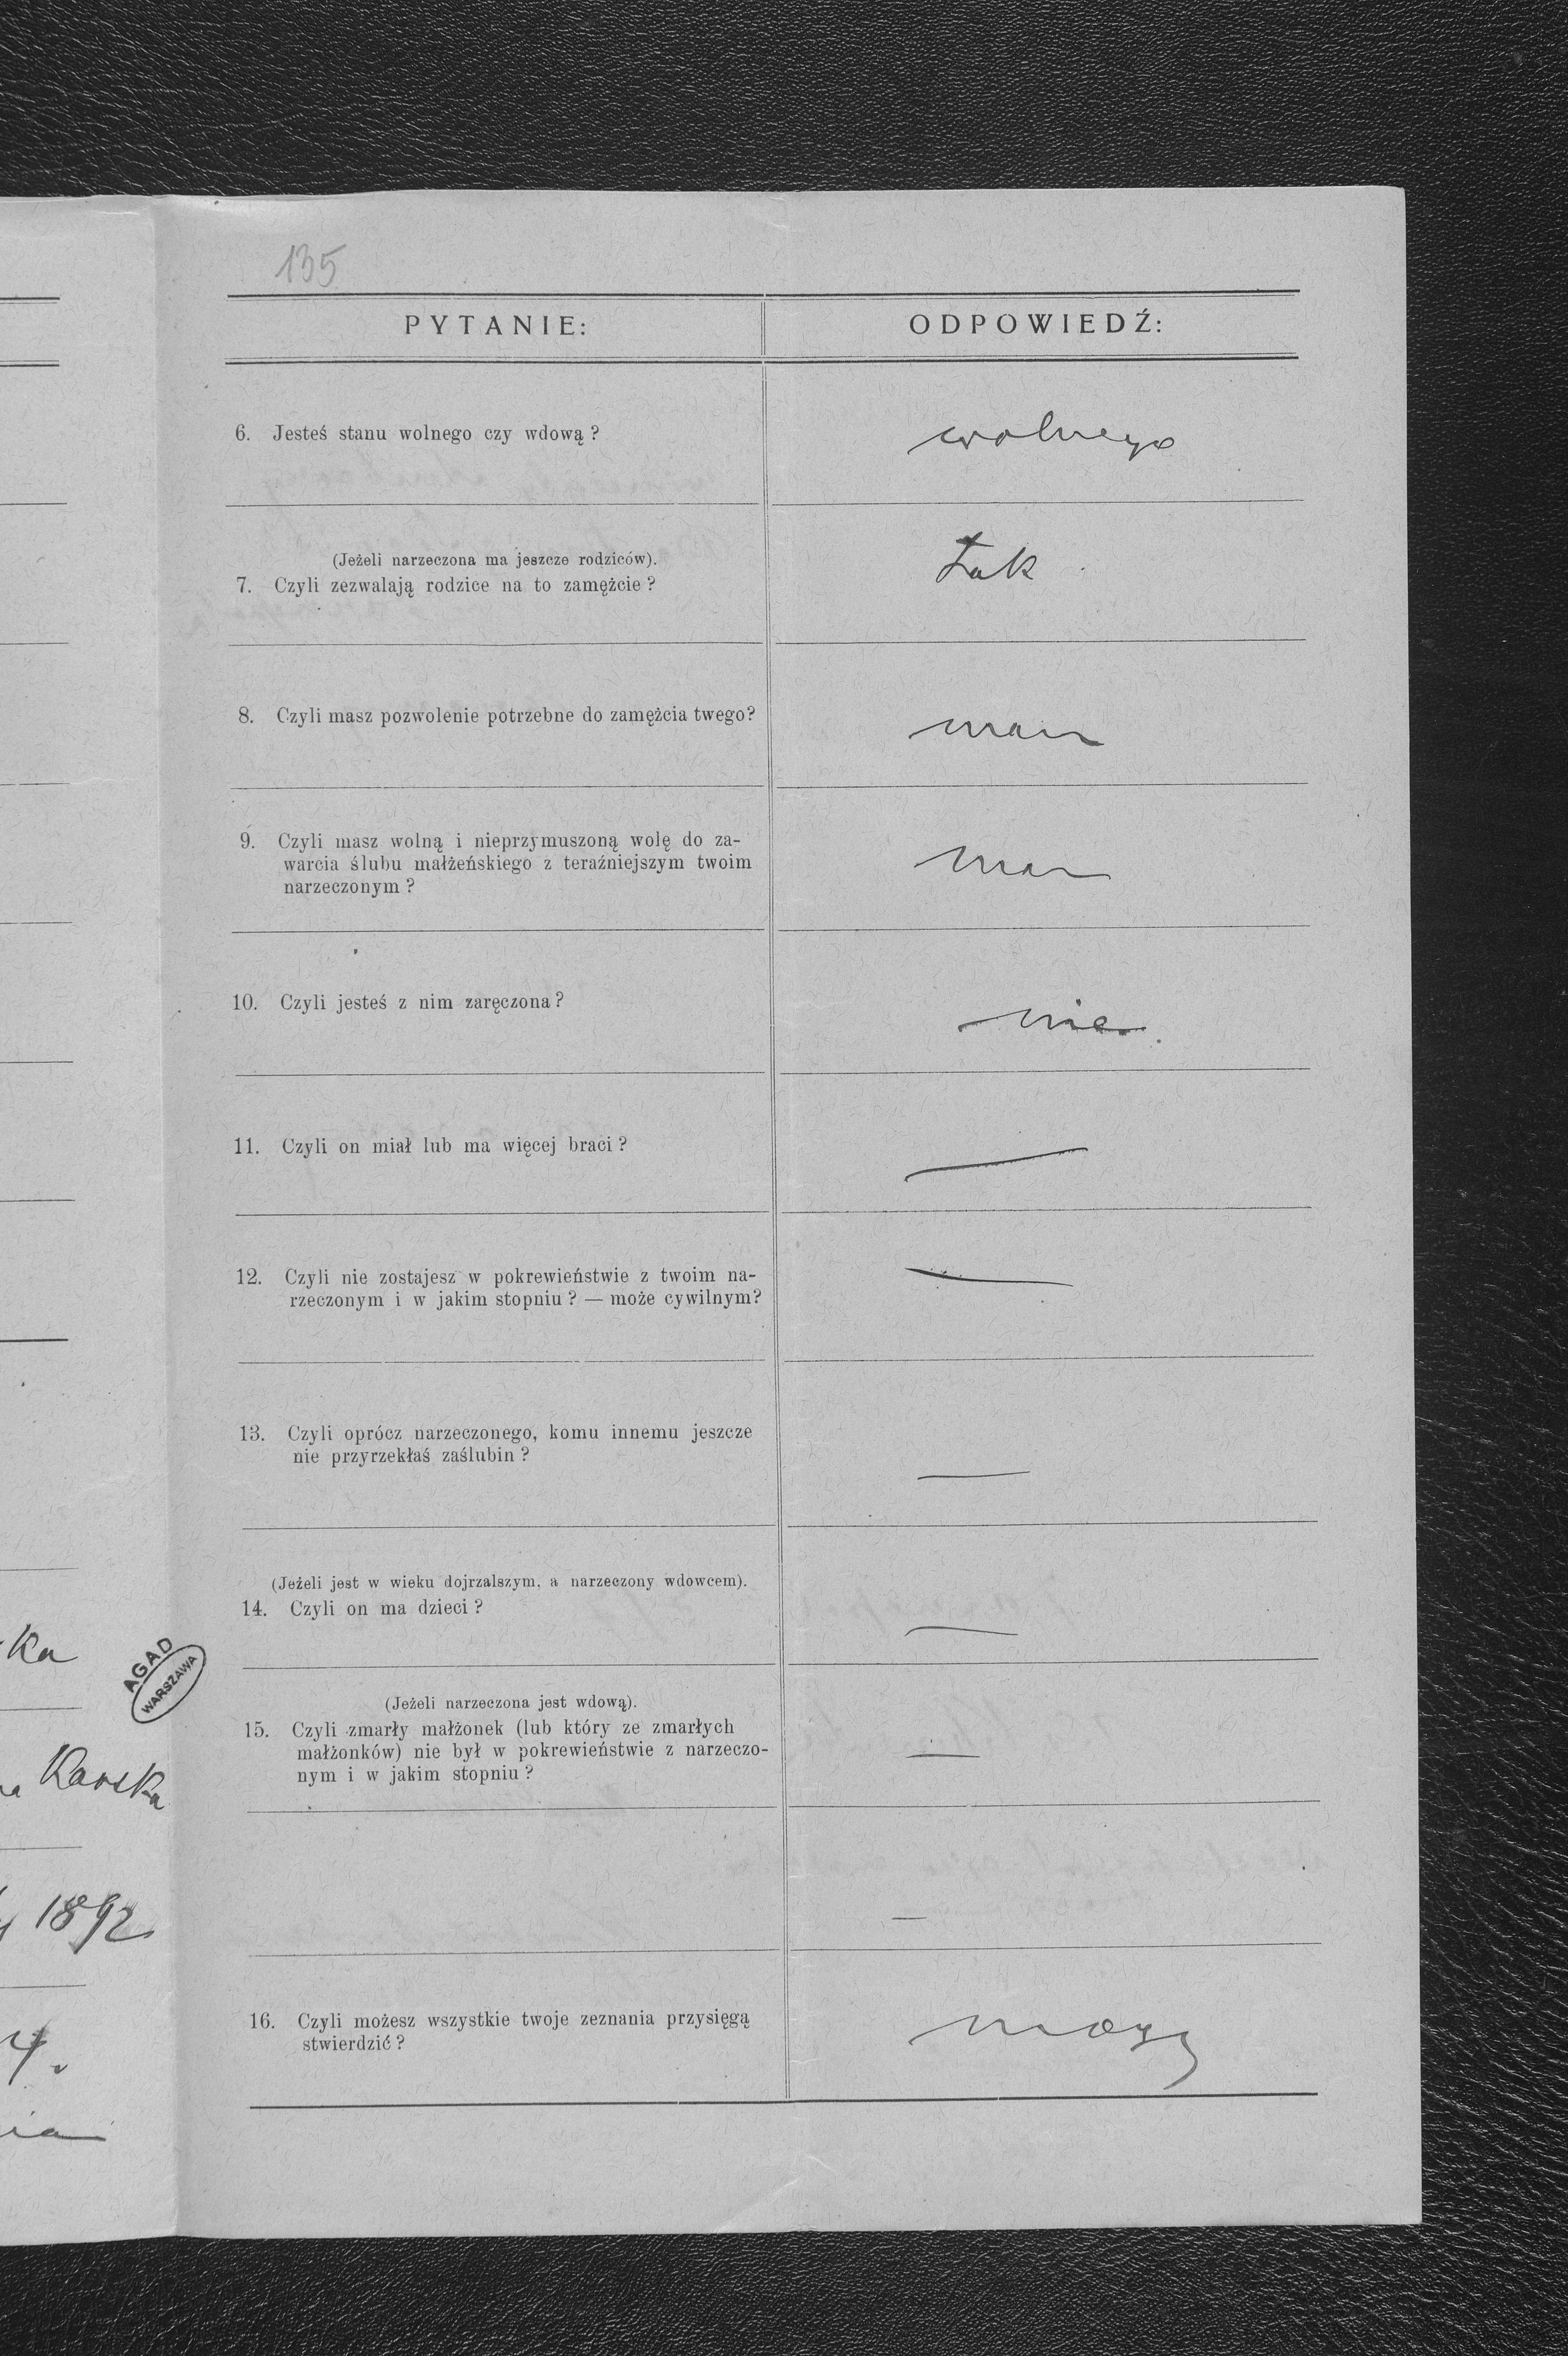 135
PYTANIE:
ODPOWIEDŹ:
6. Jesteś stanu wolnego czy wdową?
wolnego
(Jeżeli narzeczona ma jeszcze rodziców).
7. Czyli zezwalają rodzice na to zamężcie?
tak
8. Czyli masz pozwolenie potrzebne do zamężcia twego?
mam
9. Czyli masz wolną i nieprzymuszoną wolę do za-
warcia ślubu małżeńskiego z teraźniejszym twoim
narzeczonym?
mam
10. Czyli jesteś z nim zaręczona?
nie.
11. Czyli on miał lub ma więcej braci?
—
12. Czyli nie zostajesz w pokrewieństwie z twoim na-
rzeczonym i w jakim stopniu? — może cywilnym?
—
13. Czyli oprócz narzeczonego, komu innemu jeszcze
nie przyrzekłaś zaślubin?
—
(Jeżeli jest w wieku dojrzalszym, a narzeczony wdowcem).
14. Czyli on ma dzieci?
—
(Jeżeli narzeczona jest wdową).
15. Czyli zmarły małżonek (lub który ze zmarłych
małżonków) nie był w pokrewieństwie z narzeczo-
nym i w jakim stopniu?
—
—
16. Czyli możesz wszystkie twoje zeznania przysięgą
stwierdzić?
mogę
ka
AGAD
WARSZAWA
Karska
1892
4.